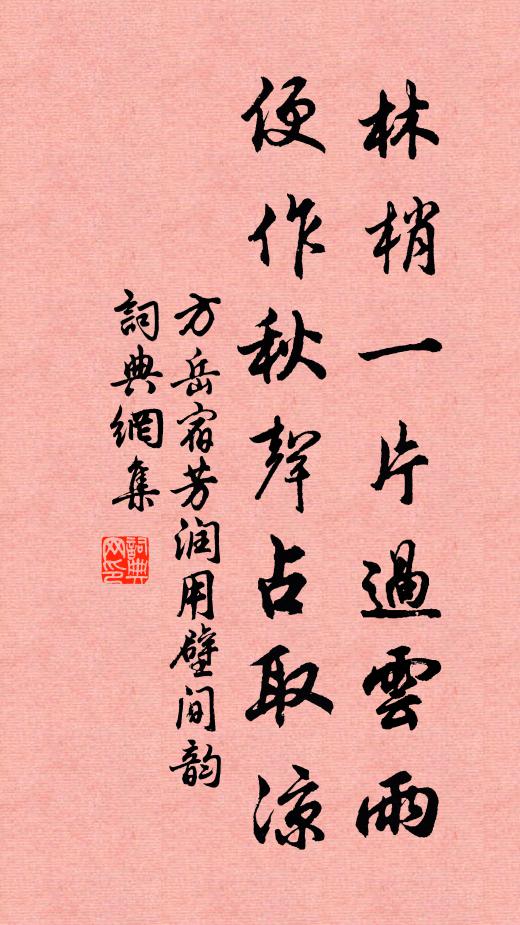 林梢一片過雲雨
便作秋聲占取凉
方岳宿芳润用壁间韵
詞典網集
詞典网印